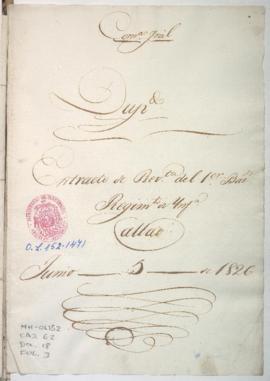 Com.ª Gral
Dup.do
Extracto de Rev.ta del 1er Bat.n
Regim.to de Ynf.a
Callao
Junio 5 de 1826
O.L.152-1471
MH-OL152
CAJ. 62
Doc. 18
FOL. 3